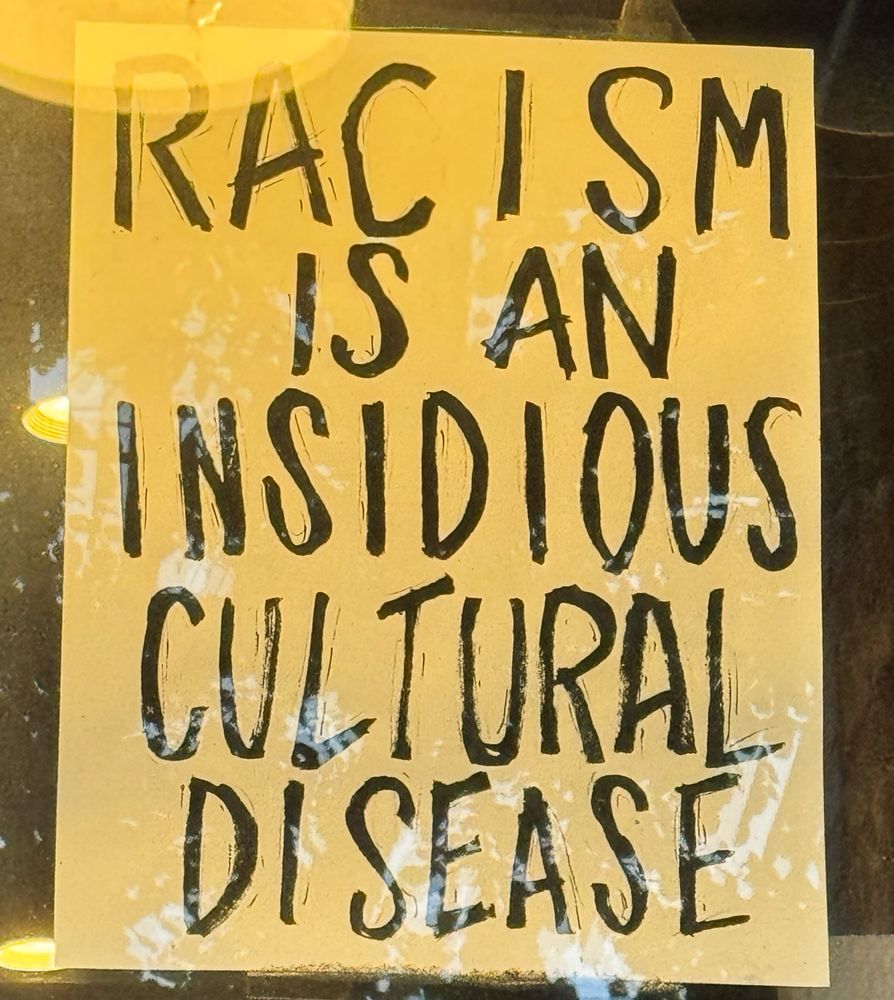 RACISM
IS AN
INSIDIOUS
CULTURAL
DISEASE